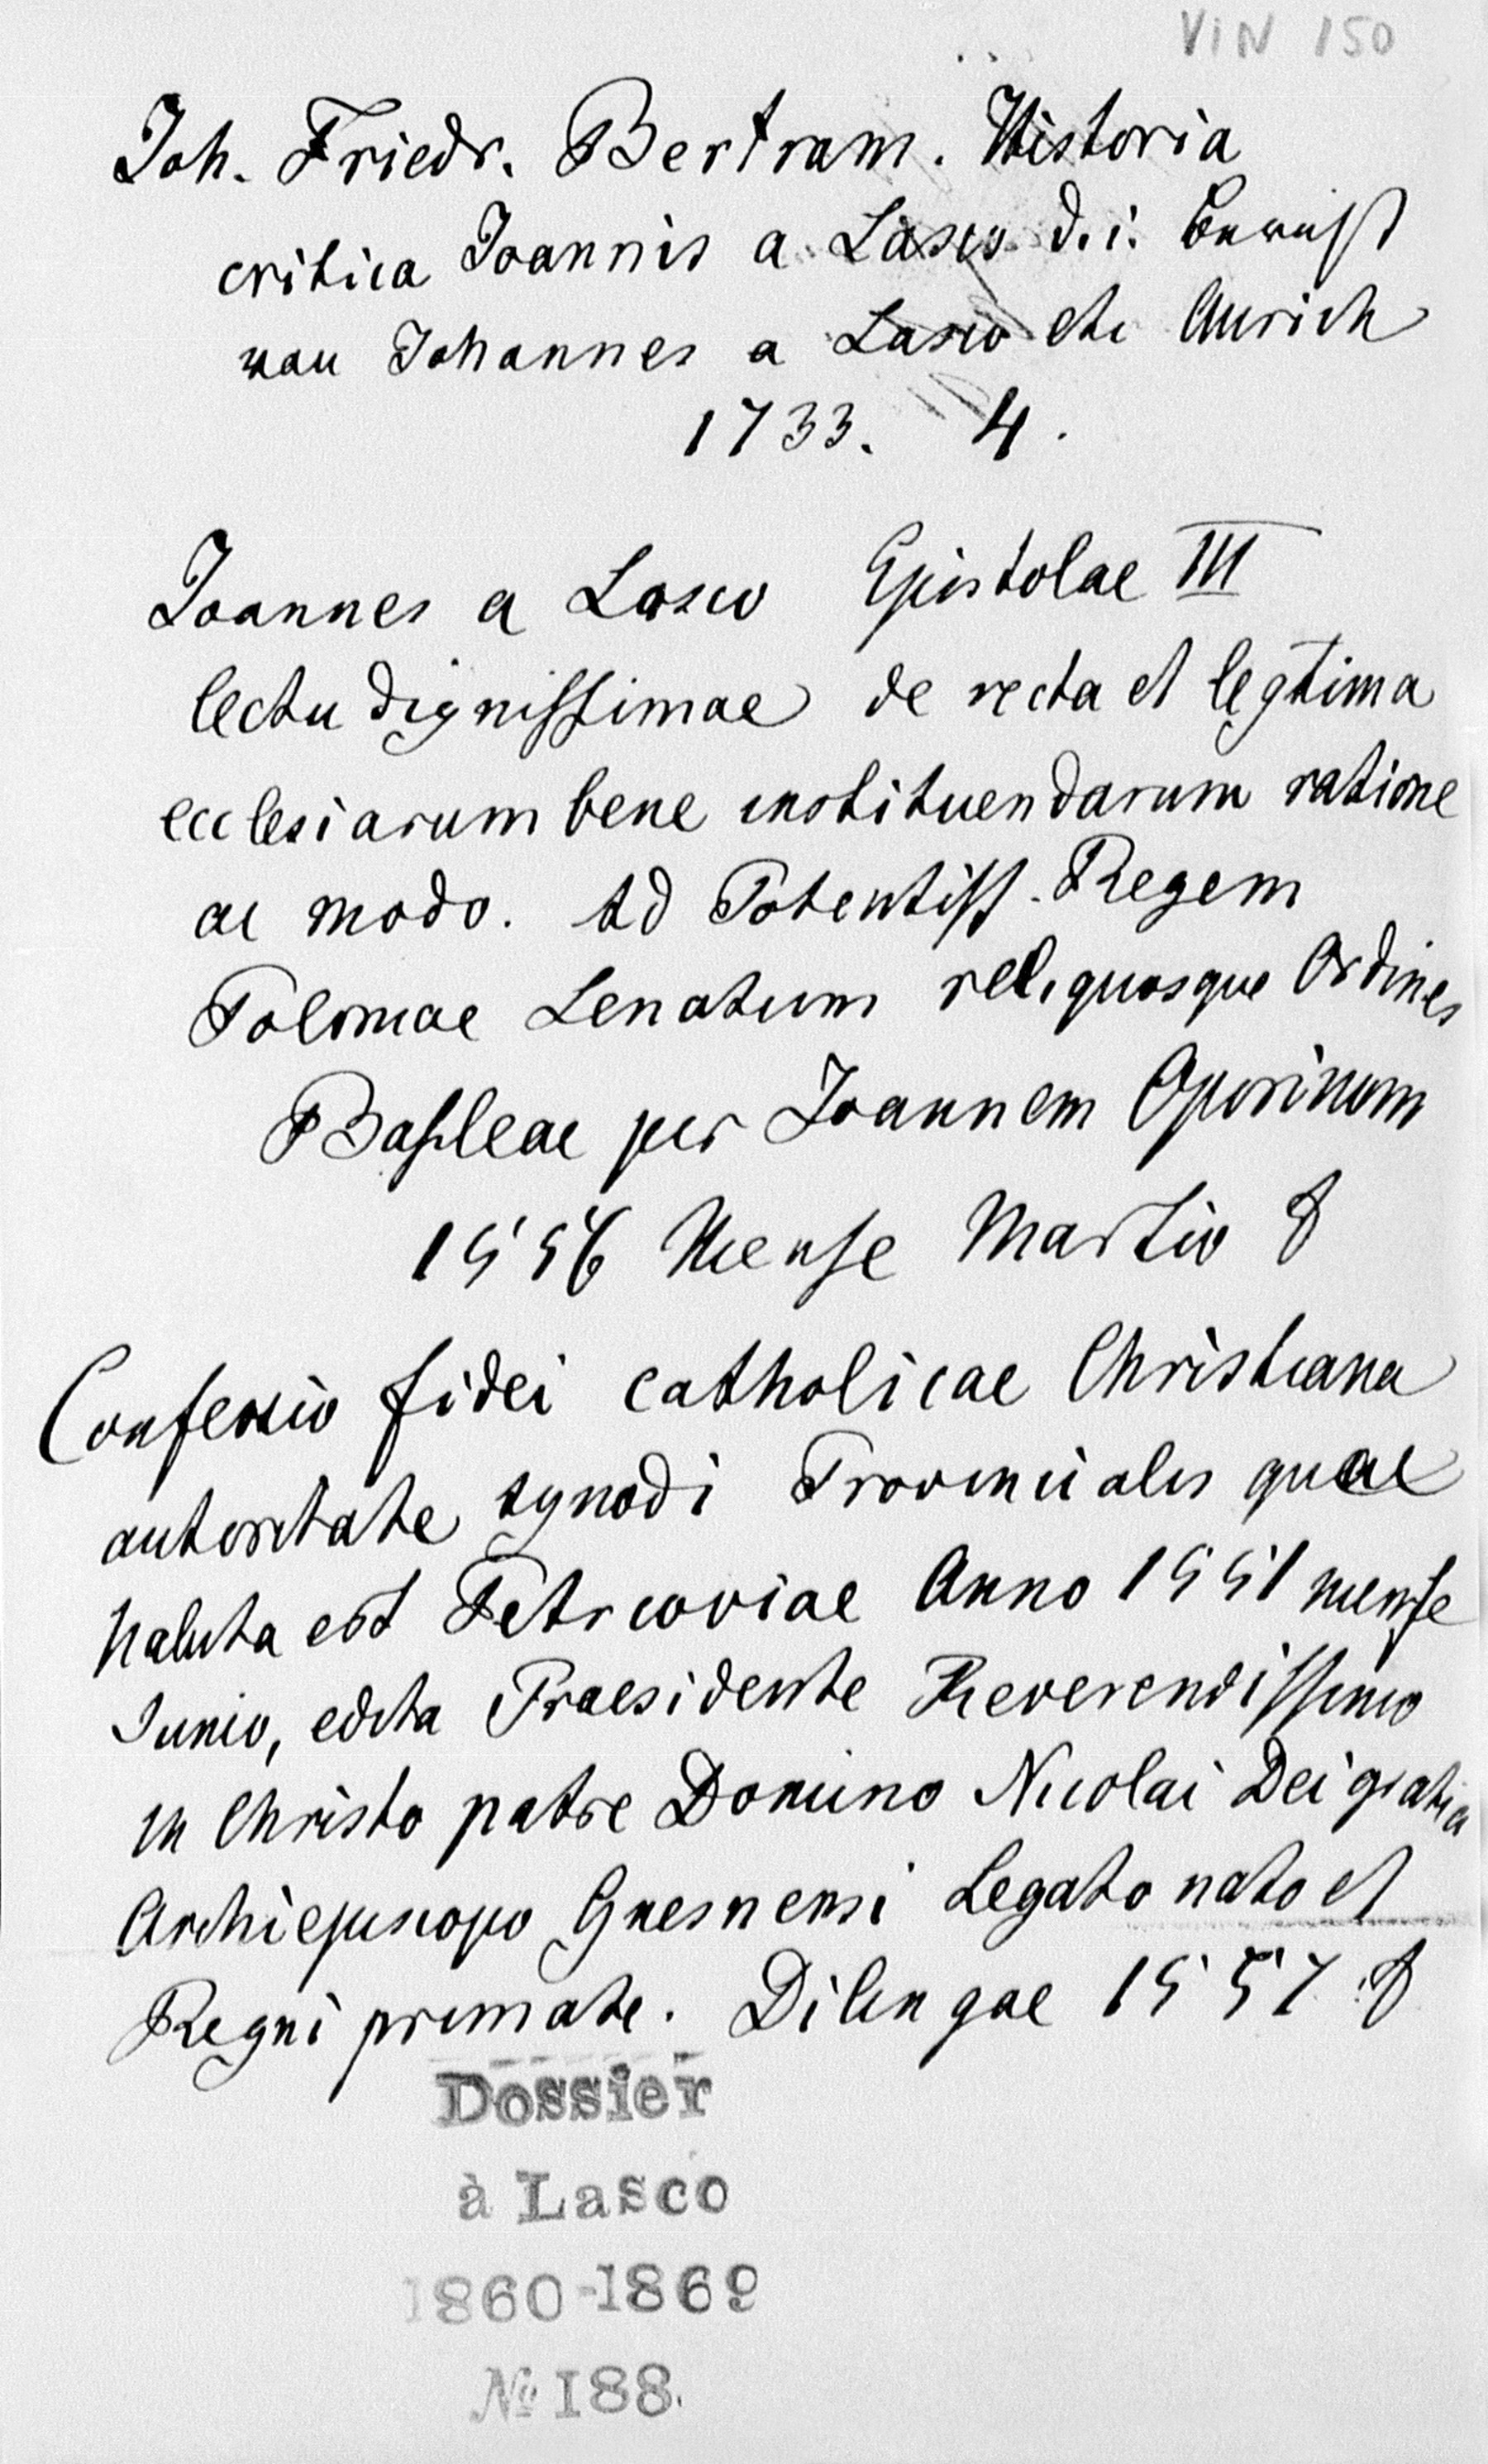 VIN 150
Joh. Friedr. Bertram. Historia
critica Joannis a Lasco d. i.
van Johannes a Lasco etc Aurich
1733. 4.
Joannes a Lasco Epistolae III
lectu dignissimae de recta et legtima
ecclesiarum bene instituendarum ratione
ac modo. Ad Potentiss. Regem
Poloniae Senatum reliquosque Ordines
Basileae per Joannem Oporinum
1556 Mense Martio 8
Confessio fidei catholicae Christiana
autoritate synodi Provincialis quae
habita est Petrcoviae Anno 1551 mense
Junio, edita Praesidente Reverendissimo
in Christo patre Domino Nicolai Dei gratia
Archiepiscopo Gnesnensi Legato nato et
Regni primate. Dilingae 1557. 8
Dossier
à Lasco
1860-1869
№ 188.